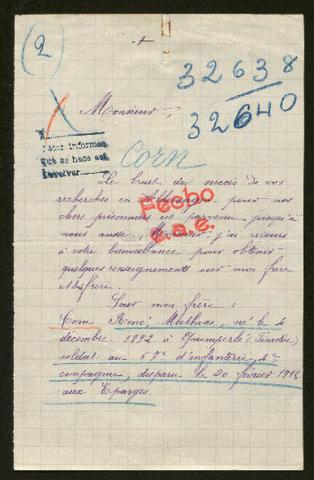 (2)
+
32638
32640
Monsieur,
Corn
informes
que se hace est
devolver
Le bruit du succès de vos
recherches en Allemagne pour nos
chers prisonniers est parvenu jusqu'à
nous aussi, Monsieur j'ai recours
à votre bienveillance pour obtenir
quelques renseignements sur mon frère
et bfrère.
Fecho
Pour mon frère :
Corn René Mathias, né le 4
décembre 1892 à Quimperlé (Finistère)
soldat au 67e d'infanterie, 4e
compagnie, disparu le 20 février 1915
aux Eparges.